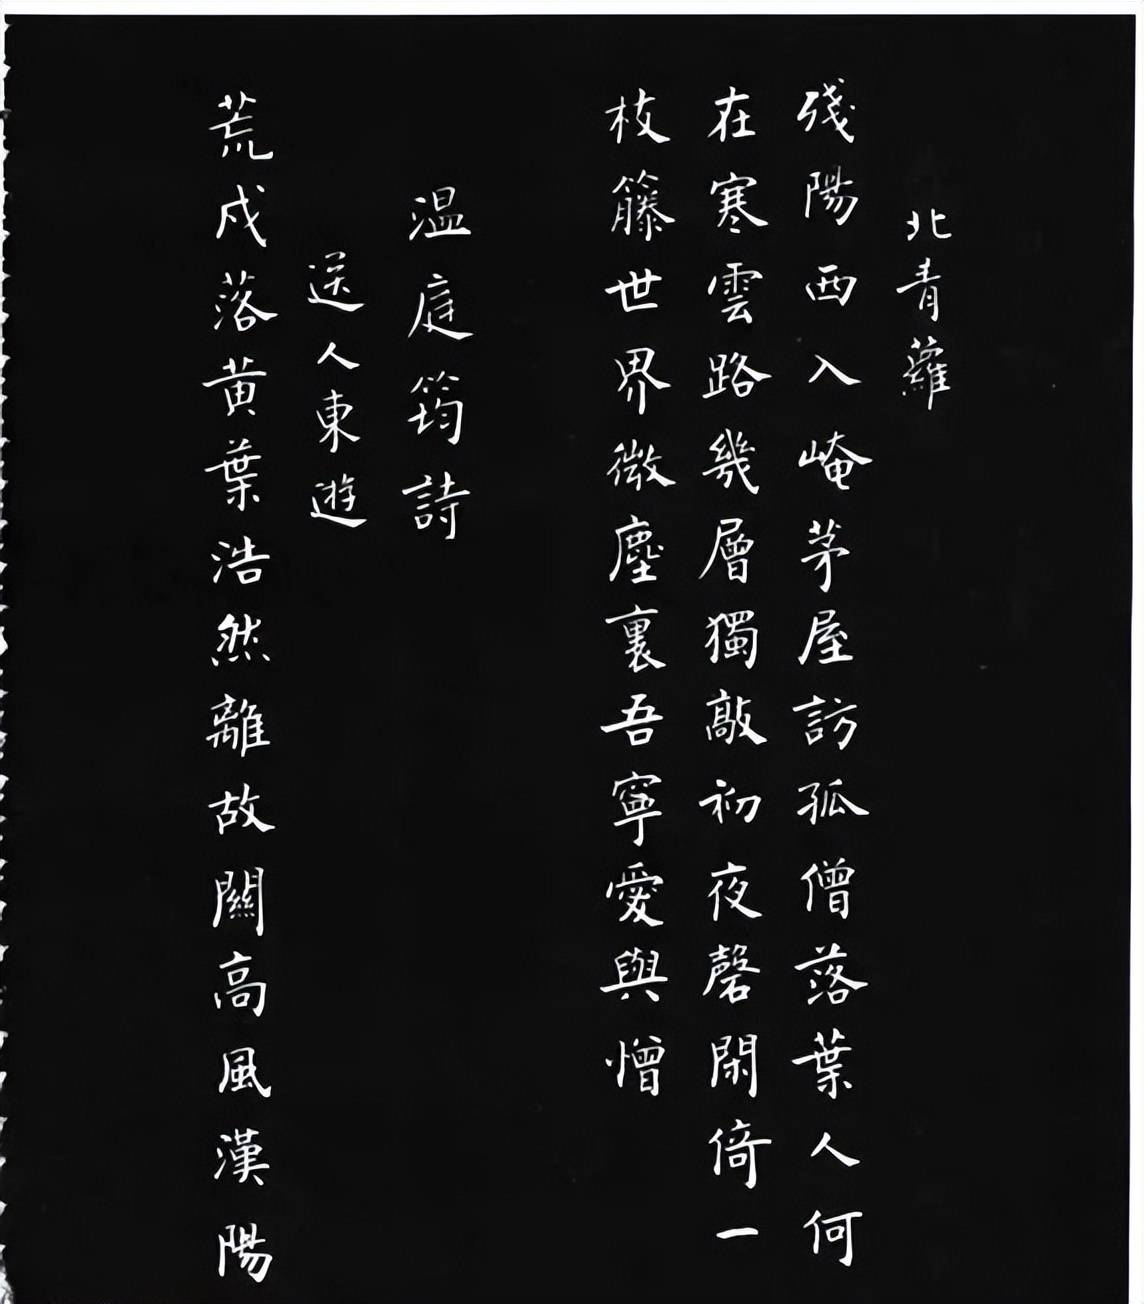 北青蘿
殘陽西入崦茅屋訪孤僧落葉人何
在寒雲路幾層獨敲初夜磬閑倚一
枝籐世界微塵裏吾寧愛與憎
温庭筠詩
送人東遊
荒戍落黄葉浩然離故關高風漢陽